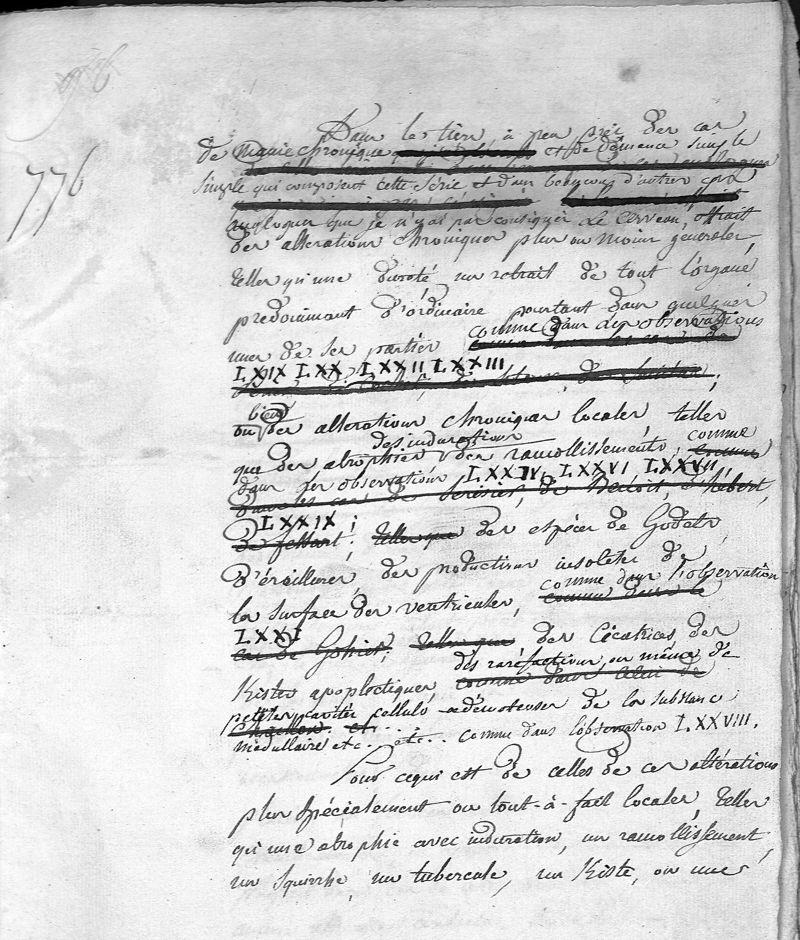 776
Dans le tiers, à peu près des cas
de Manie chronique et de démence
simple qui composent cette série et dans beaucoup d'autres cas
analogues que je n'y ai pas consignés Le Cerveau, offrait
des altérations chroniques plus ou moins générales,
telles qu'une dureté, un retrait de tout l'organe
prédominant d'ordinaire pourtant dans quelques
unes de ses parties comme dans les observations
LXIX LXX, LXXII LXXIII ;
ou bien des altérations chroniques locales, telles
que des atrophies des indurations des ramollissements, comme
dans les observations LXXIV, LXXVI LXXVII,
LXXIX ; des espèces de Godets,
d'éraillures, des productions insolites de
la surface des ventricules, comme dans l'observation
LXXI des Cicatrices des
Kistes apoplectiques, des raréfactions, ou même de
petites cavités cellulo-oedémateuses de la substance
médullaire etc... etc... comme dans l'observation LXXVIII.
Pour ce qui est de celles de ces altérations
plus spécialement ou tout-à-fait locales, telles
qu'une atrophie avec induration, un ramollissement,
un squirrhe, un tubercule, un Kiste, ou une